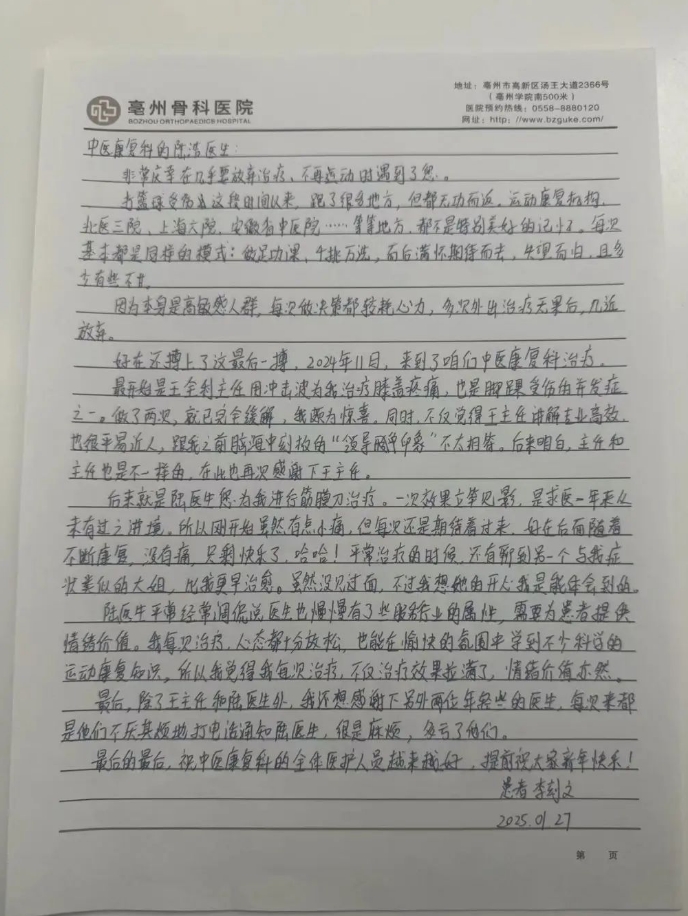 亳州骨科医院
BOZHOU ORTHOPAEDICS HOSPITAL
地址：亳州市高新区汤王大道2366号
（亳州学院南500米）
医院预约热线：0558-8880120
网址：http://www.bzguke.com/
中医康复科的陆浩医生：
非常庆幸在几乎要放弃治疗、不再运动时遇到了您。
打篮球受伤这段时间以来，跑了很多地方，但都无功而返。运动康复机构、
北医三院、上海六院、安徽省中医院……等等地方，都不是特别美好的记忆。每次
基本都是同样的模式：做足功课，千挑万选，而后满怀期待而去，失望而归，且多
少有些不甘。
因为本身是高敏感人群，每次做决策都较耗心力，多次外出治疗无果后，几近
放弃。
好在还搏上了这最后一搏，2024年11月，来到了咱们中医康复科治疗。
最开始是王全利主任用冲击波为我治疗膝盖疼痛，也是脚踝受伤的并发症
之一。做了两次，就已完全缓解，我颇为惊喜。同时，不仅觉得王主任讲解专业高效，
也很平易近人，跟我之前脑海中刻板的“领导印象”不太相符。后来明白，主任和
主任也是不一样的，在此也再次感谢下王主任。
后来就是陆医生您为我进行筋膜刀治疗。一次效果立竿见影，是求医一年来从
未有过之进境。所以刚开始虽然有点小痛，但每次还是期待着过来，好在后面随着
不断康复，没有痛，只剩快乐了，哈哈！平常治疗的时候，还有听到另一个与我症
状类似的大姐，比我更早治愈。虽然没见过面，不过我想她的开心我是能体会到的。
陆医生平常经常调侃说医生也慢慢有了些服务行业的属性，需要为患者提供
情绪价值。我每次治疗，心态都十分放松，也能在愉快的氛围中学到不少科学的
运动康复知识。所以我觉得我每次治疗，不仅治疗效果拉满了，情绪价值亦然。
最后，除了王主任和陆医生外，我还想感谢下另外两位年轻些的医生，每次来都
是他们不厌其烦地打电话通知陆医生，很是麻烦，多亏了他们。
最后的最后，祝中医康复科的全体医护人员越来越好，提前祝大家新年快乐！
患者 李刻文
2025.01.27
第 页